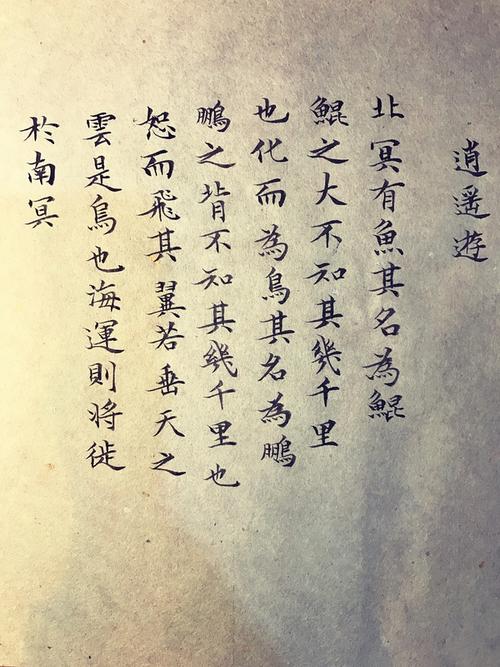 逍遥遊
北冥有魚其名為鯤
鯤之大不知其幾千里
也化而為鳥其名為鵬
鵬之背不知其幾千里也
恕而飛其翼若垂天之
雲是鳥也海運則将徙
於南冥